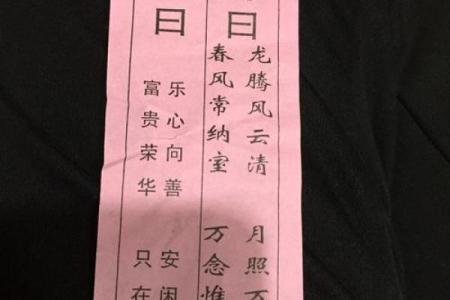 曰
龙腾风云清 月照万
春风常纳室 万念惟
曰
乐心向善 安闲
富贵荣华 只在